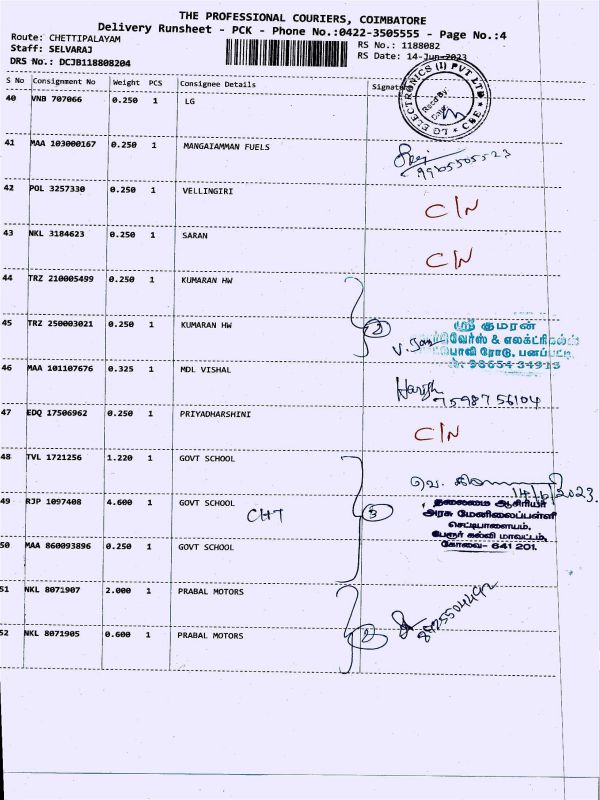 THE PROFESSIONAL COURIERS, COIMBATORE
Delivery Runsheet - PCK - Phone No.:0422-3505555 - Page No.:4
Route: CHETTIPALAYAM
Staff: SELVARAJ
DRS No.: DCJB118808204
RS No.: 1188082
RS Date: 14-Jun-2023
S No Consignment No Weight PCS Consignee Details Signature
40 VNB 707066 0.250 1 LG
LG ELECTRONICS (I) PVT LTD * CBE *
Recd By
Date
41 MAA 103000167 0.250 1 MANGAIAMMAN FUELS
42 POL 3257330 0.250 1 VELLINGIRI C/N
43 NKL 3184623 0.250 1 SARAN C/N
44 TRZ 210005499 0.250 1 KUMARAN HW
45 TRZ 250003021 0.250 1 KUMARAN HW 2
ஸ்ரீ குமரன்
ஹார்டுவேர்ஸ் & எலக்ட்ரிகல்ஸ்
ரோடு, பனப்பட்டி
98654 34913
46 MAA 101107676 0.325 1 MDL VISHAL
Harish
7598756104
47 EDQ 17506962 0.250 1 PRIYADHARSHINI C/N
48 TVL 1721256 1.220 1 GOVT SCHOOL
14/6/2023.
49 RJP 1097408 4.600 1 GOVT SCHOOL 3
CHT
தலைமை ஆசிரியர்
அரசு மேனிலைப்பள்ளி
செட்டிபாளையம்,
பேரூர் கல்வி மாவட்டம்,
கோவை- 641 201.
50 MAA 860093896 0.250 1 GOVT SCHOOL
51 NKL 8071907 2.000 1 PRABAL MOTORS
52 NKL 8071905 0.600 1 PRABAL MOTORS 2